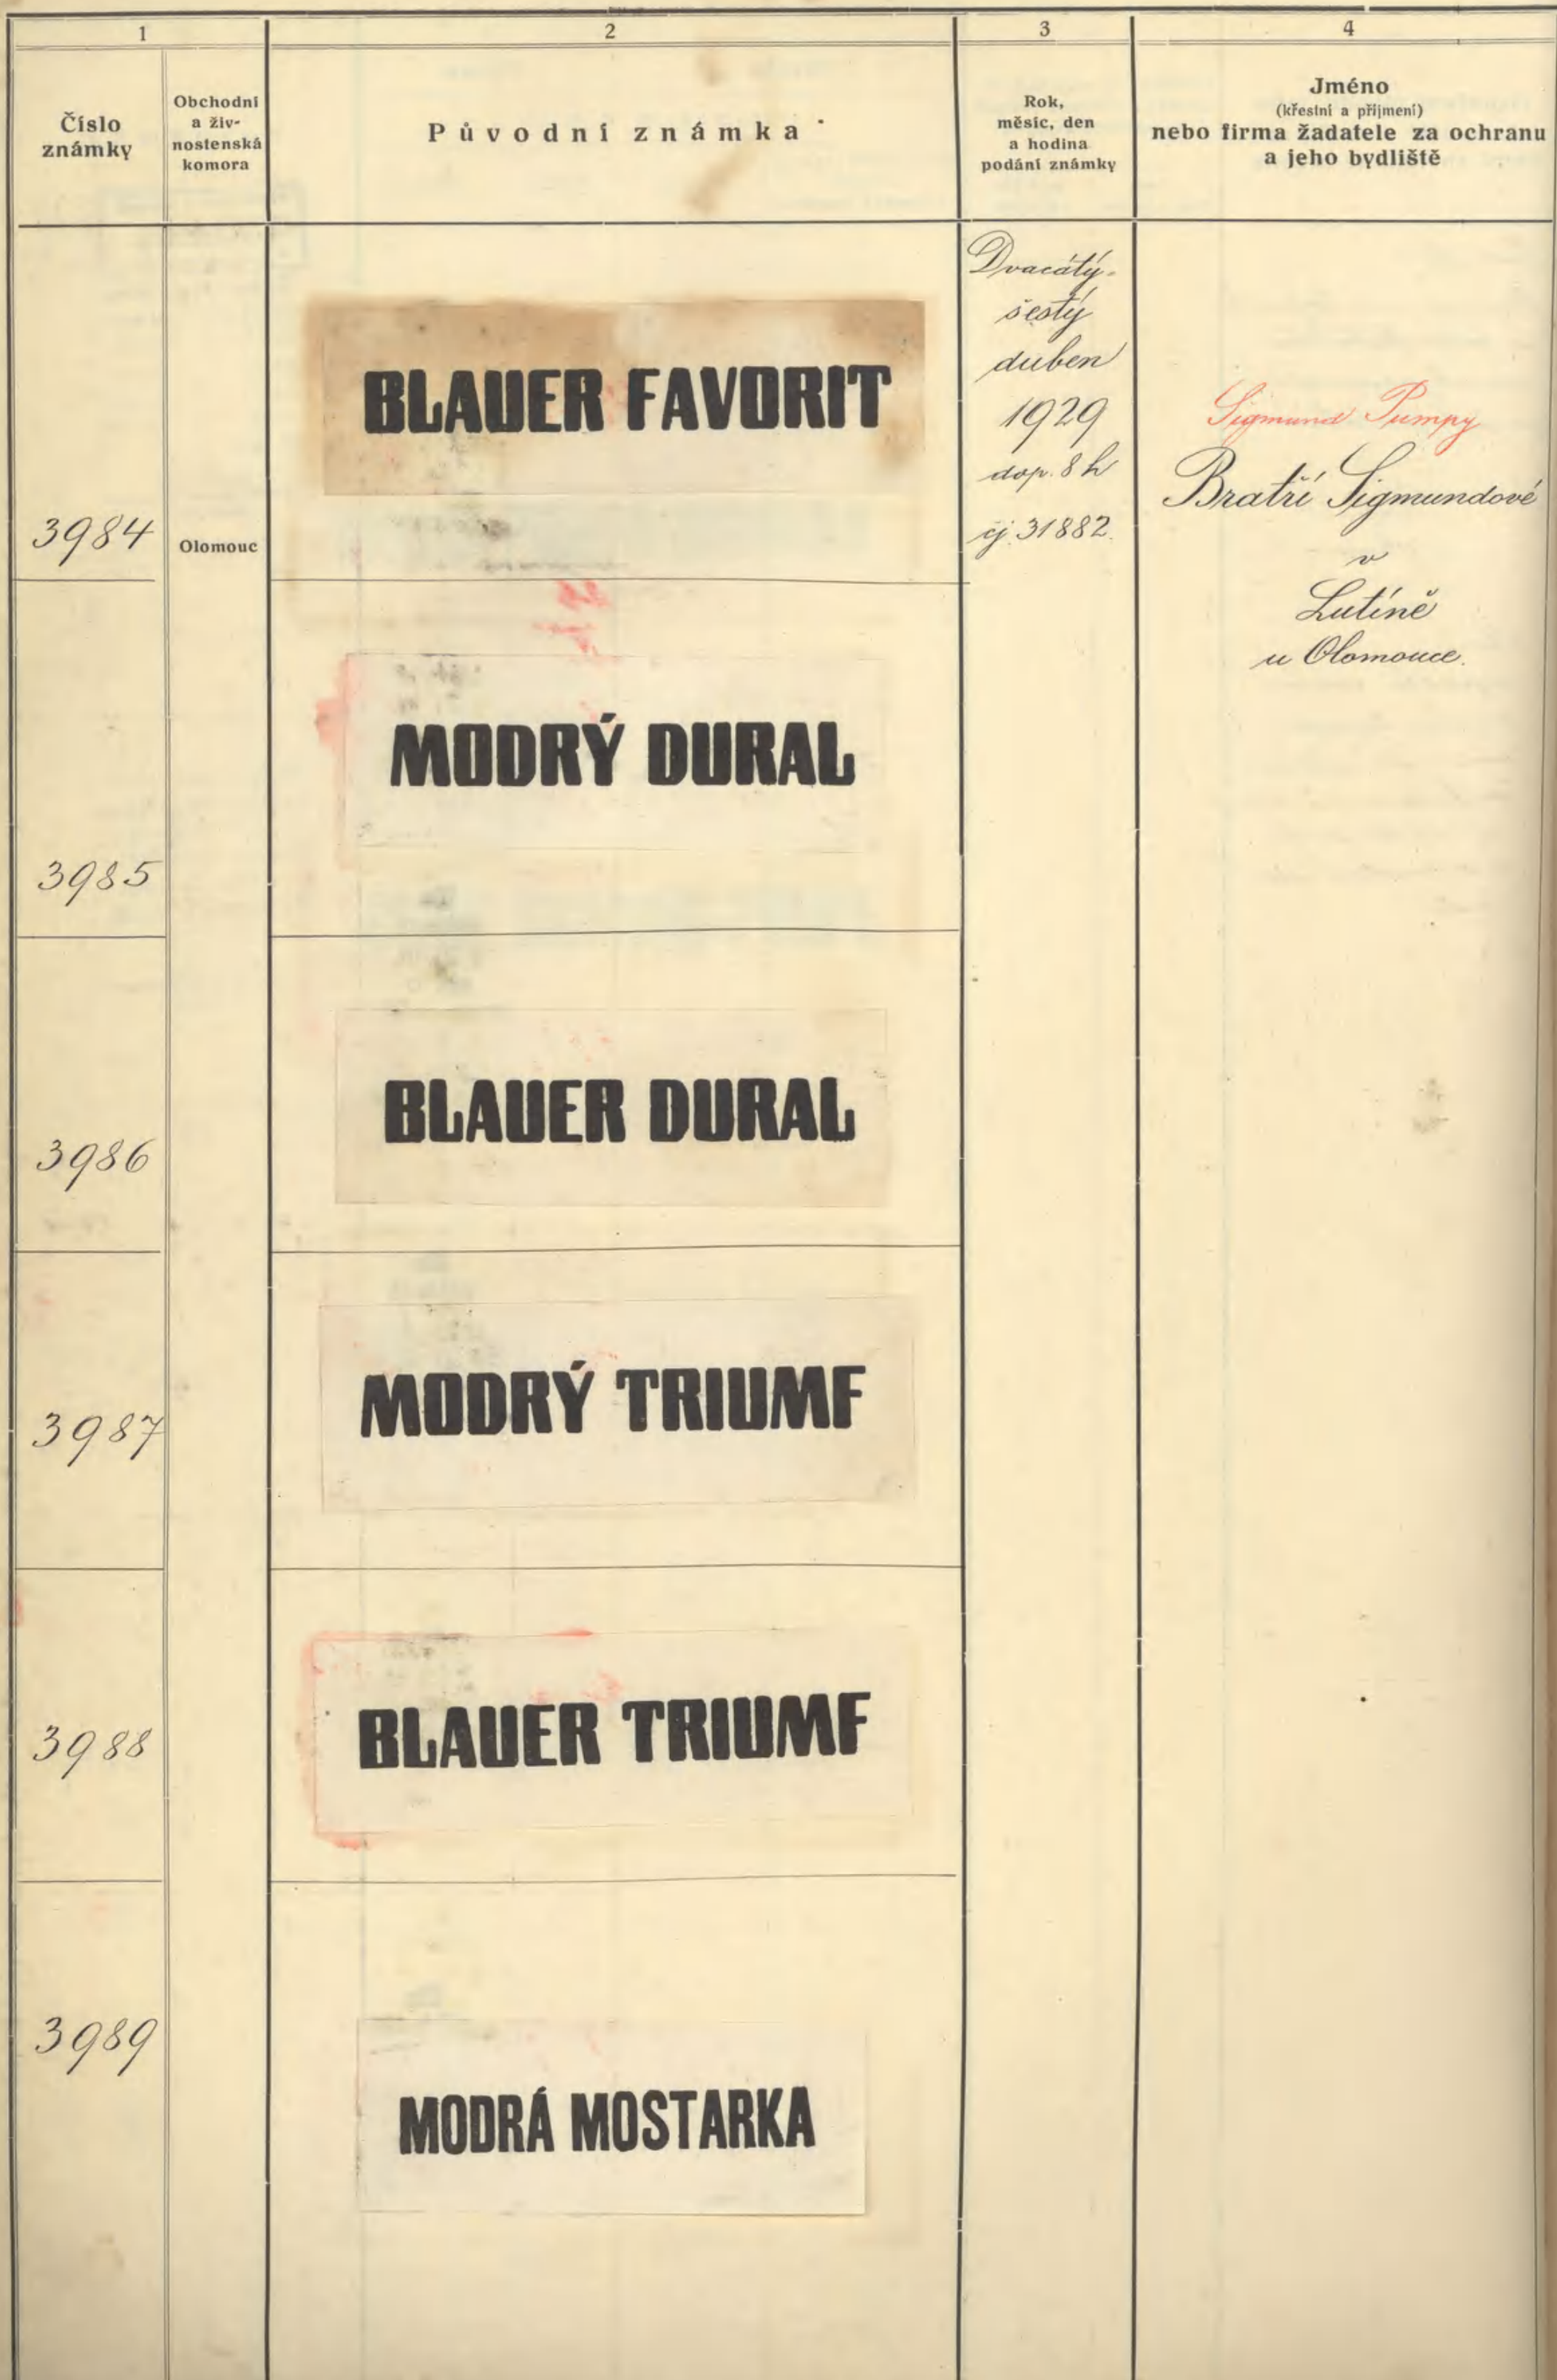 1
2
3
4
Číslo
známky
Obchodní
a živ-
nostenská
komora
Původní známka
Rok,
měsíc, den
a hodina
podání známky
Jméno
(křestní a příjmení)
nebo firma žadatele za ochranu
a jeho bydliště
3984
Olomouc
BLAUER FAVORIT
Dvacátý-
šestý
duben
1929
dop. 8 h
čj. 31882.
Sigmund Pumpy
Bratři Sigmundové
v
Lutíně
u Olomouce.
3985
MODRÝ DURAL
3986
BLAUER DURAL
3987
MODRÝ TRIUMF
3988
BLAUER TRIUMF
3989
MODRÁ MOSTARKA